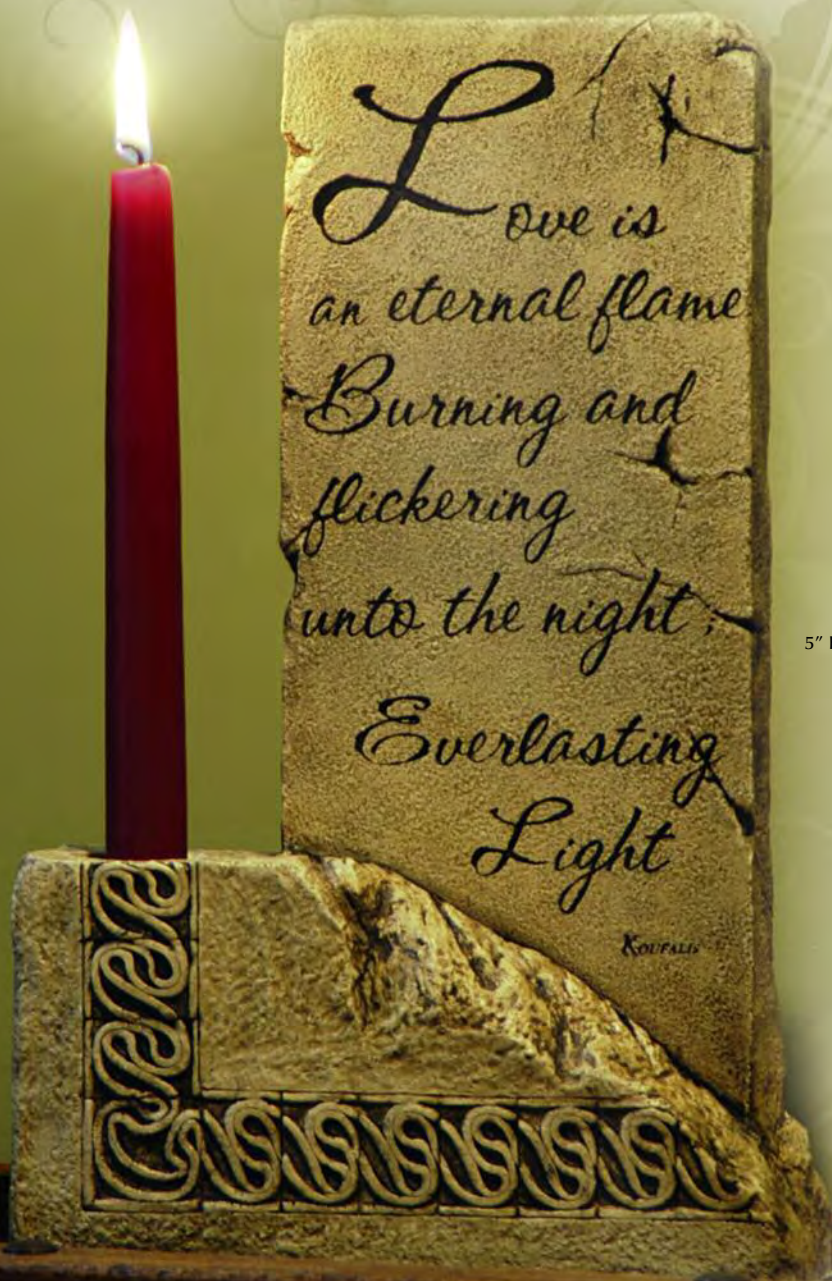 Love is
an eternal flame
Burning and
flickering
unto the night,
Everlasting
Light
Koufalis
5"